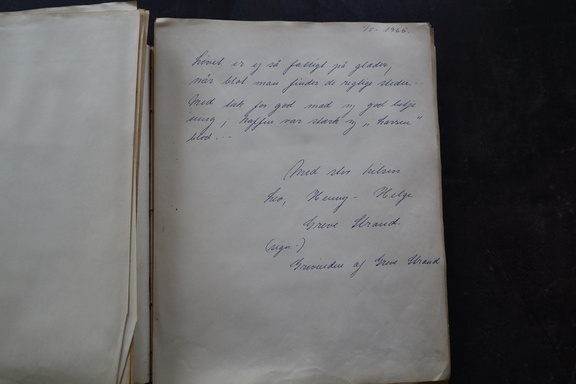 1965.
Livet er ej så fattigt på glæder,
når blot man finder de rigtige steder...
Med tak for god mad og god betje
ning, kaffen var stærk og „tassen"
blød...
Med stor hilsen
Leo, Henny - Helge
Greve Strand.
(sign.)
Grevinden af Greve Strand